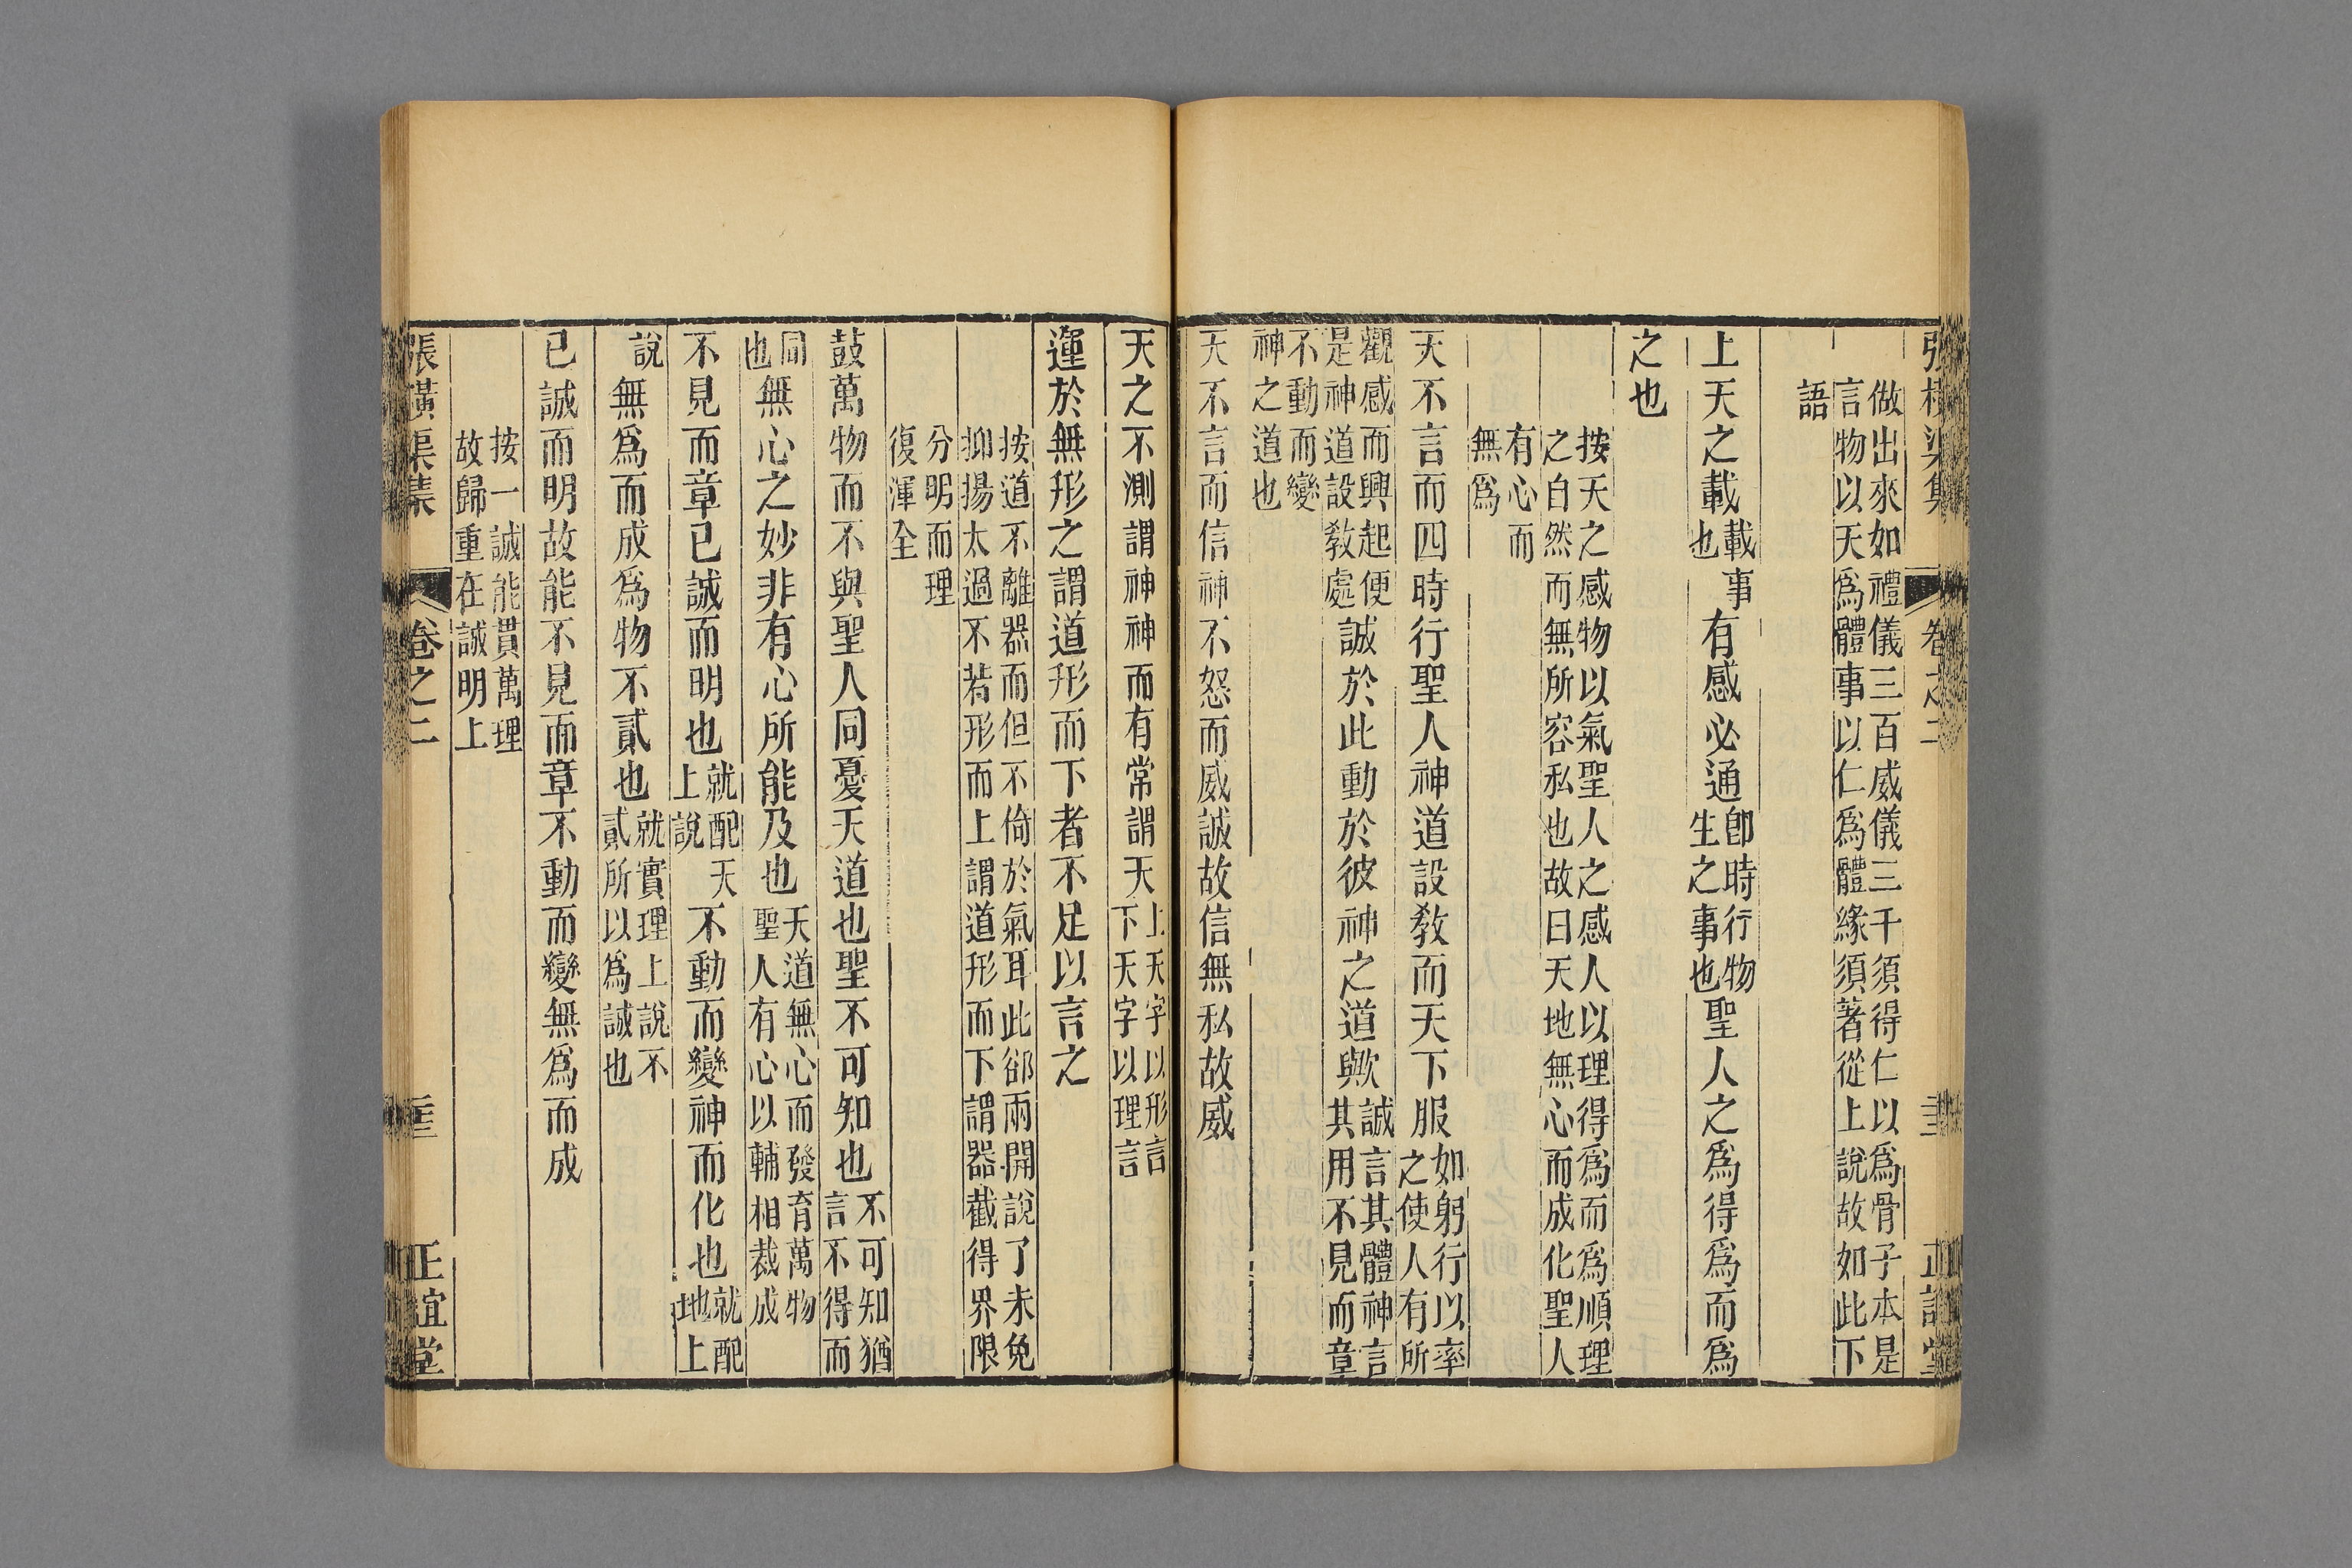 張橫渠集 卷之二 正誼堂
做出來如禮儀三百威儀三千須得仁以爲骨子本是
言物以天爲體事以仁爲體緣須著從上說故如此下
語
上天之載載事也有感必通卽時行物生之事也聖人之爲得爲而爲
之也
按天之感物以氣聖人之感人以理得爲而爲順理
之自然而無所容私也故曰天地無心而成化聖人
有心而
無爲
天不言而四時行聖人神道設敎而天下服如躬行以率之使人有所
觀感而興起便是神道設敎處誠於此動於彼神之道與歟誠言其體神言其用不見而章
不動而變
神之道也
天不言而信神不怒而威誠故信無私故威
天之不測謂神神而有常謂天上天字以形言下天字以理言
運於無形之謂道形而下者不足以言之
按道不離器而但不倚於氣耳此郤兩開說了未免
抑揚太過不若形而上謂道形而下謂器截得界限
分明而理
復渾全
鼓萬物而不與聖人同憂天道也聖不可知也不可知猶言不得而
同也無心之妙非有心所能及也天道無心而發育萬物聖人有心以輔相裁成
不見而章已誠而明也就配天上說不動而變神而化也就配地上
說無爲而成爲物不貳也就實理上說不貳所以爲誠也
已誠而明故能不見而章不動而變無爲而成
按一誠能貫萬理
故歸重在誠明上
張橫渠集 卷之二 正誼堂